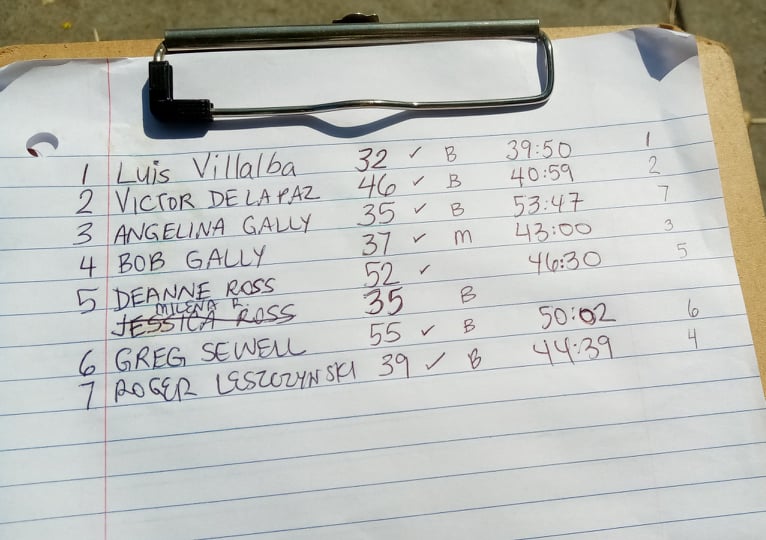 1 Luis Villalba 32 ✓ B 39:50 1
2 VICTOR DE LA PAZ 46 ✓ B 40:59 2
3 ANGELINA GALLY 35 ✓ B 53:47 7
4 BOB GALLY 37 ✓ m 43:00 3
5 DEANNE ROSS 52 ✓ 46:30 5
MILENA R.
JESSICA ROSS 35 B
6 GREG SEWELL 55 ✓ B 50:02 6
7 ROGER LESZCZYNSKI 39 ✓ B 44:39 4